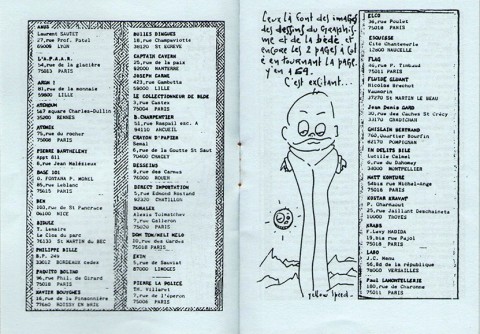 ANUS
Laurent SAUTET
27 rue Prof. Patel
69009 LYON
L'A.P.A.A.R.
54,rue de la glacière
75013 PARIS
ARGH !
81,rue de la monnaie
59800 LILLE
ATENDUM
147 square Charles-Dullin
35200 RENNES
ATOMIX
75,rue du rocher
75008 PARIS
PIERRE BARTHELEMY
Appt 811
8,rue Jean Malézieux
BASE 101
D. FONTANA P. MOREL
85,rue Leblanc
75015 PARIS
BEN
103,route de St Pancrate
06100 NICE
BIDULE
T. Lemaire
Le Clos du parc
76133 St MARTIN du BEC
PHILIPPE BILLE
B.P. 2es
33012 BORDEAUX cedex
PAQUITO BOLINO
96,rue Phil. de Girard
75018 PARIS
XAVIER BOUYGUES
16,rue de la Pinsonnière
77680 ROISSY EN BRIE
BULLES DINGUES
18,rue Champaviotte
38120 St EGREVE
CAPTAIN CAVERN
25,rue de la paix
92000 NANTERRE
JOSEPH CARNE
423,rue Gambetta
59000 LILLE
LE COLLECTIONNEUR DE BLDE
3,rue Castex
75004 PARIS
B.CHARPENTIER
51,rue Raspail esc. A
94110 ARCUEIL
CRAYON D'PAPIER
Samal
6,rue de la Goutte St Saut
DESSEINS
8,rue des Carmes
76000 ROUEN
DIRECT IMPORTATION
5,rue Edmond Rostand
92320 CHATILLON
DUMALEX
Alexis Tolmatchev
7,rue Calleron
75020 PARIS
DOM TOM/MELI MELO
10,rue des Gardes
75018 PARIS
EKIN
9,rue de Sauviat
87000 LIMOGES
PIERRE LA POLICE
St. Villaret
7,rue de l'éperon
75006 PARIS
Ceux là font des images
des dessins du graphisme
et de la bède et
encore les 2 pages à coté
é en tournant la page.
y'en a 159.
C'est excitant...
yellow speed
ELCO
36,rue Poulet
75018 PARIS
ESQUISSE
Cité Chantemerle
12800 NAUCELLE
FLAG
46,rue P. Timbaud
75011 PARIS
FLUIDE ELUANT
Nicolas Brachet
Vaumorin
37270 St MARTIN LE BEAU
Jean Denis GARD
30,rue des Caches St Crécy
33170 GRADIGNAN
GHISLAIN BERTRAND
760,quartier Bourfin
82170 POMPIGNAN
EN DELITS BILE
Lucille Calmel
6,rue du Dahomey
34000 MONTPELLIER
MATT KONTURE
54bis rue Michel-Ange
75016 PARIS
KOSTAR KRAVAT
P. Charmault
25,rue Jaillant Deschainets
10000 TROYES
KRABS
F.Levy HADIDA
19,bis rue Pajol
75018 PARIS
LABO
J.C. Menu
56,Bd de la république
78000 VERSAILLES
Paul LAMONTELLERIE
180,rue de Charonne
75011 PARIS